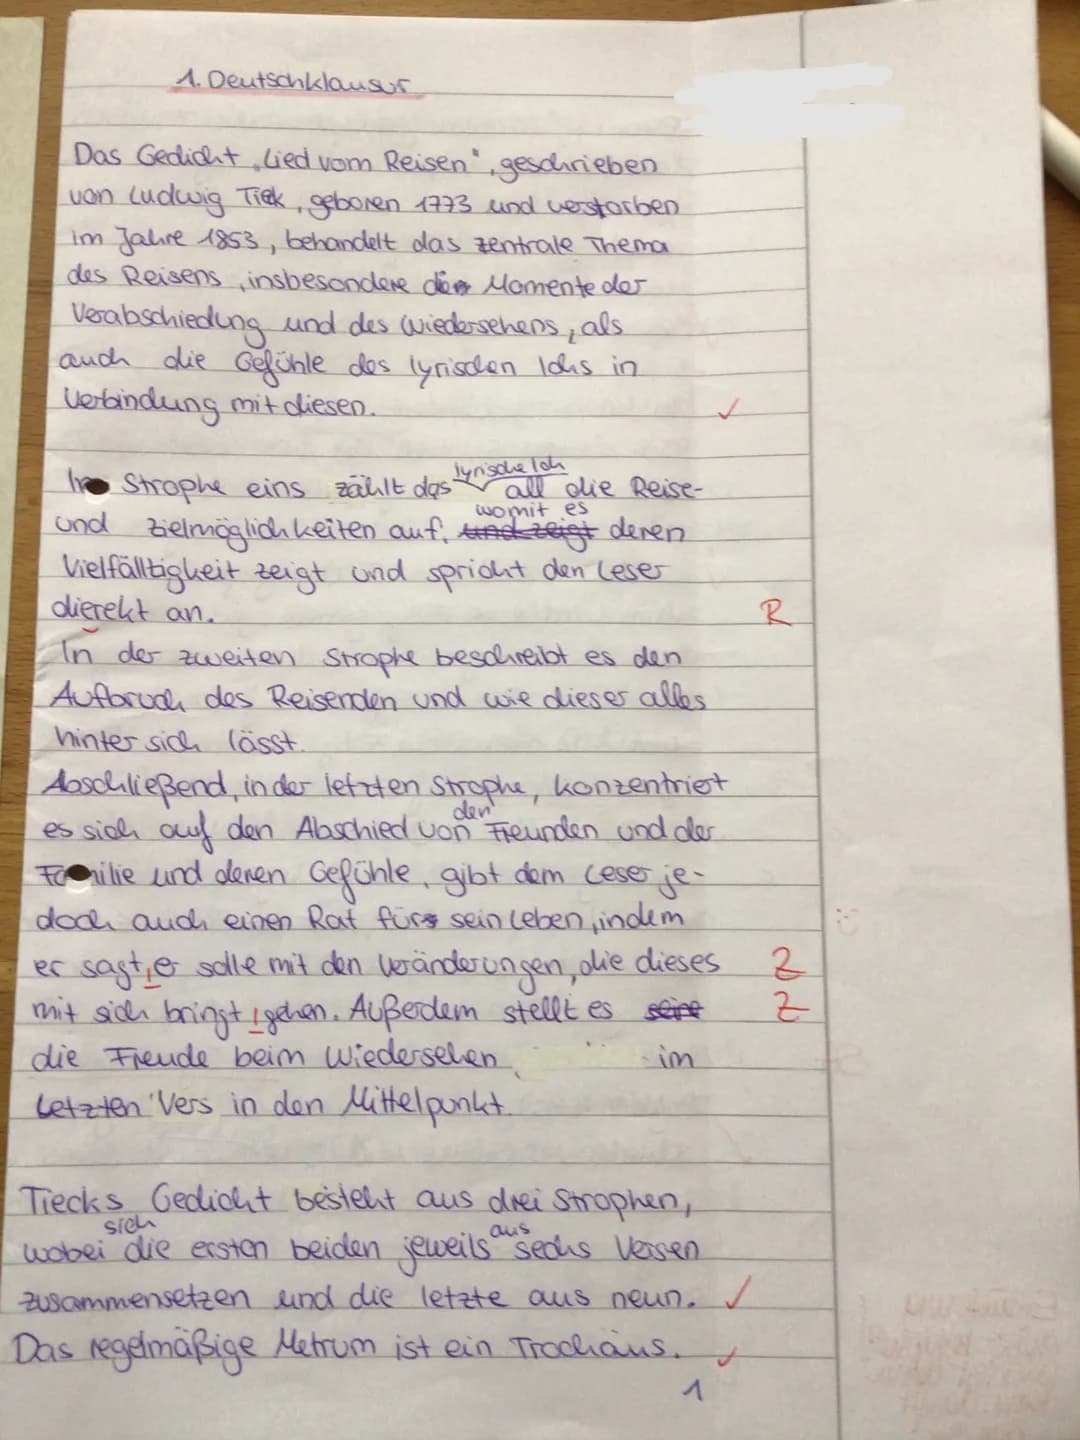 1. Deutschklausur
Das Gedicht „Lied vom Reisen“, geschrieben
von Ludwig Tiek, geboren 1773 und verstorben
im Jahre 1853, behandelt das zentrale Thema
des Reisens, insbesondere der Momente der
Verabschiedung und des Wiedersehens, als
auch die Gefühle des lyrischen Ichs in
Verbindung mit diesen.
In Strophe eins zählt das lyrische Ich all die Reise-
und Zielmöglichkeiten auf, womit es und zeigt deren
Vielfälltigkeit zeigt und spricht den Leser
dierekt an.
R
In der zweiten Strophe beschreibt es den
Aufbruch des Reisenden und wie dieser alles
hinter sich lässt.
Abschließend, in der letzten Strophe, konzentriert
es sich auf den Abschied von den Freunden und der
Familie und deren Gefühle, gibt dem Leser je-
doch auch einen Rat für sein Leben, indem
er sagt, er solle mit den Veränderungen, die dieses Z
mit sich bringt, gehen. Außerdem stellt es seine Z
die Freude beim Wiedersehen im
letzten Vers in den Mittelpunkt.
Tiecks Gedicht besteht aus drei Strophen,
wobei sich die ersten beiden jeweils aus sechs Versen
zusammensetzen und die letzte aus neun.
Das regelmäßige Metrum ist ein Trochäus.
1